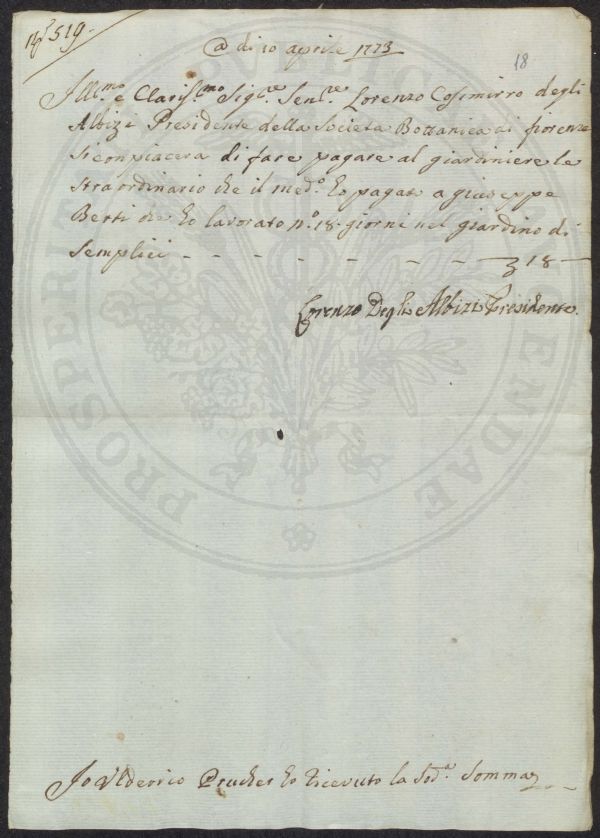 Nº 519.
@ di 10 aprile 1773
18
Illmo. e Clarismo. Sigre. Senre. Lorenzo Cosimirro degli
Albizi Presidente della Societa Bottanica di fiorenze
si conpiacera di fare pagare al giardiniere le
straordinario che il medo. ho pagato a giuseppe
Berti che ho lavorato no. 18. giorni nel giardino di
Semplici - - - - - - - 18 -
Lorenzo Degli Albizi Presidente.
Io Ulderico Prucher ho ricevuto la Soda. Somma
PROSPERITATI PUBLICAE AUGENDAE